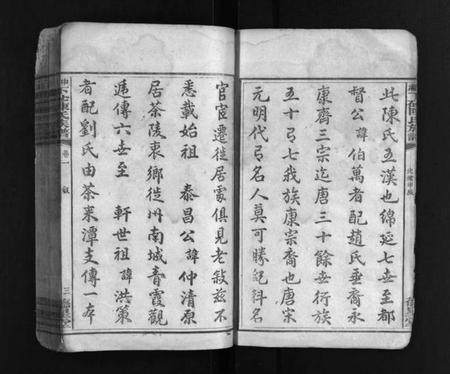 此陳氏五漢也綿延七世至都
督公諱伯萬者配趙氏垂裔永
康齋三宗迄唐三十餘世衍族
五十弓七我族康宗裔也唐宋
元明代弓名人莫可勝記阡名
官宦遷徙居處俱見老敍茲不
悉載始祖 泰昌公諱仲清原
居茶陵衷鄉徙州南城青霞觀
遞傳六世至 軒世祖諱洪策
者配劉氏由茶來潭支傳一本
卷一 敍
三